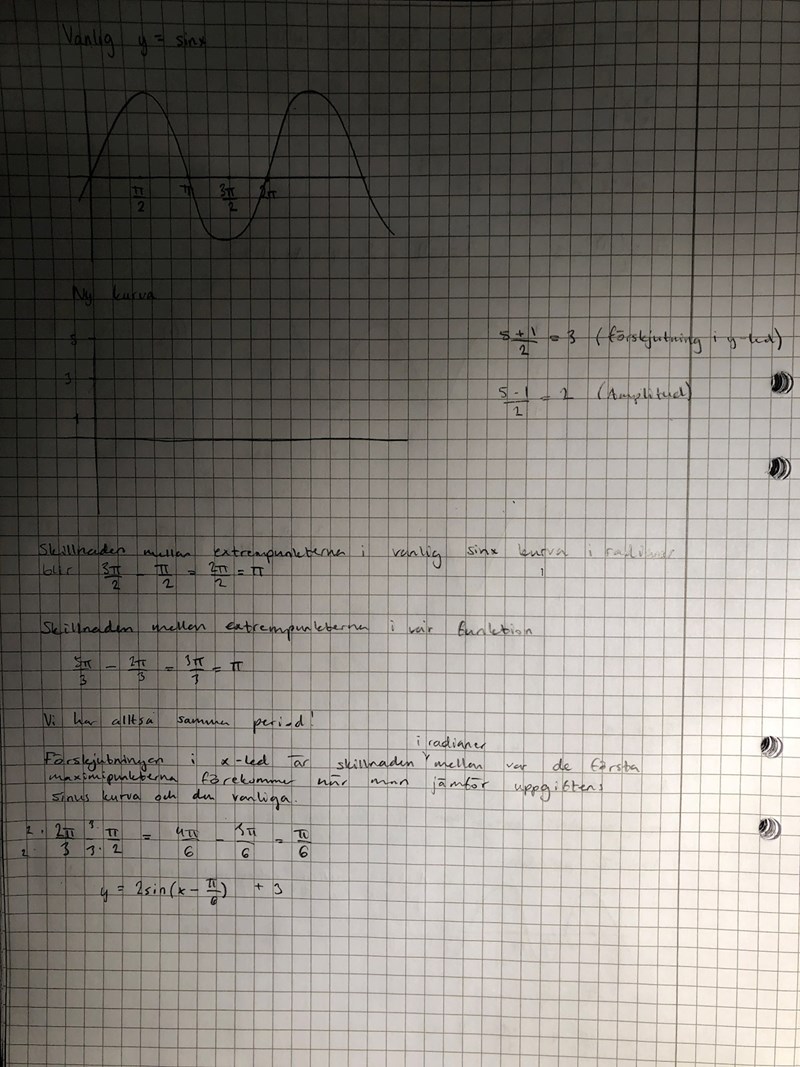 Vanlig y = sinx
π/2 π 3π/2 2π
Ny kurva
5
3
1
(5+1)/2 = 3 (förskjutning i y-led)
(5-1)/2 = 2 (Amplitud)
Skillnaden mellan extrempunkterna i vanlig sinx kurva i radianer
blir 3π/2 - π/2 = 2π/2 = π
Skillnaden mellan extrempunkterna i vår funktion
5π/3 - 2π/3 = 3π/3 = π
Vi har alltså samma period!
Förskjutningen i x-led är skillnaden i radianer mellan var de första
maximipunkterna förekommer när man jämför uppgiftens
sinus kurva och den vanliga.
2·2π/2·3 3·π/3·2 = 4π/6 - 3π/6 = π/6
y = 2sin(x - π/6) + 3